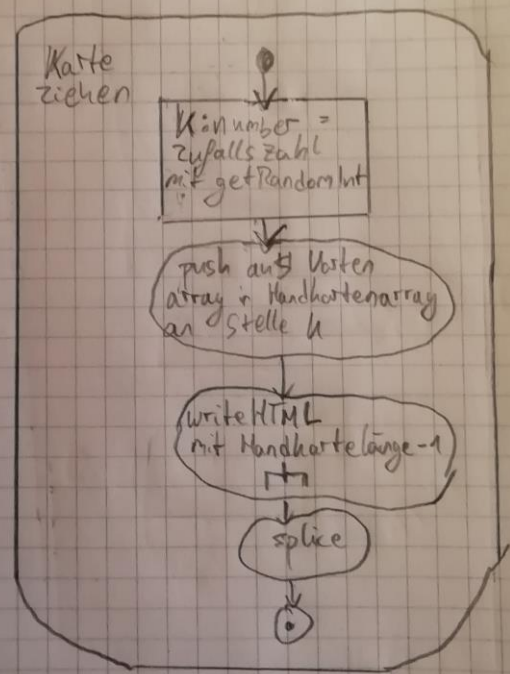 Karte
ziehen
K: number =
Zufallszahl
mit getRandomInt
push aus Karten
array in Handkartenarray
an Stelle k
writeHTML
mit Handkartelänge-1
splice